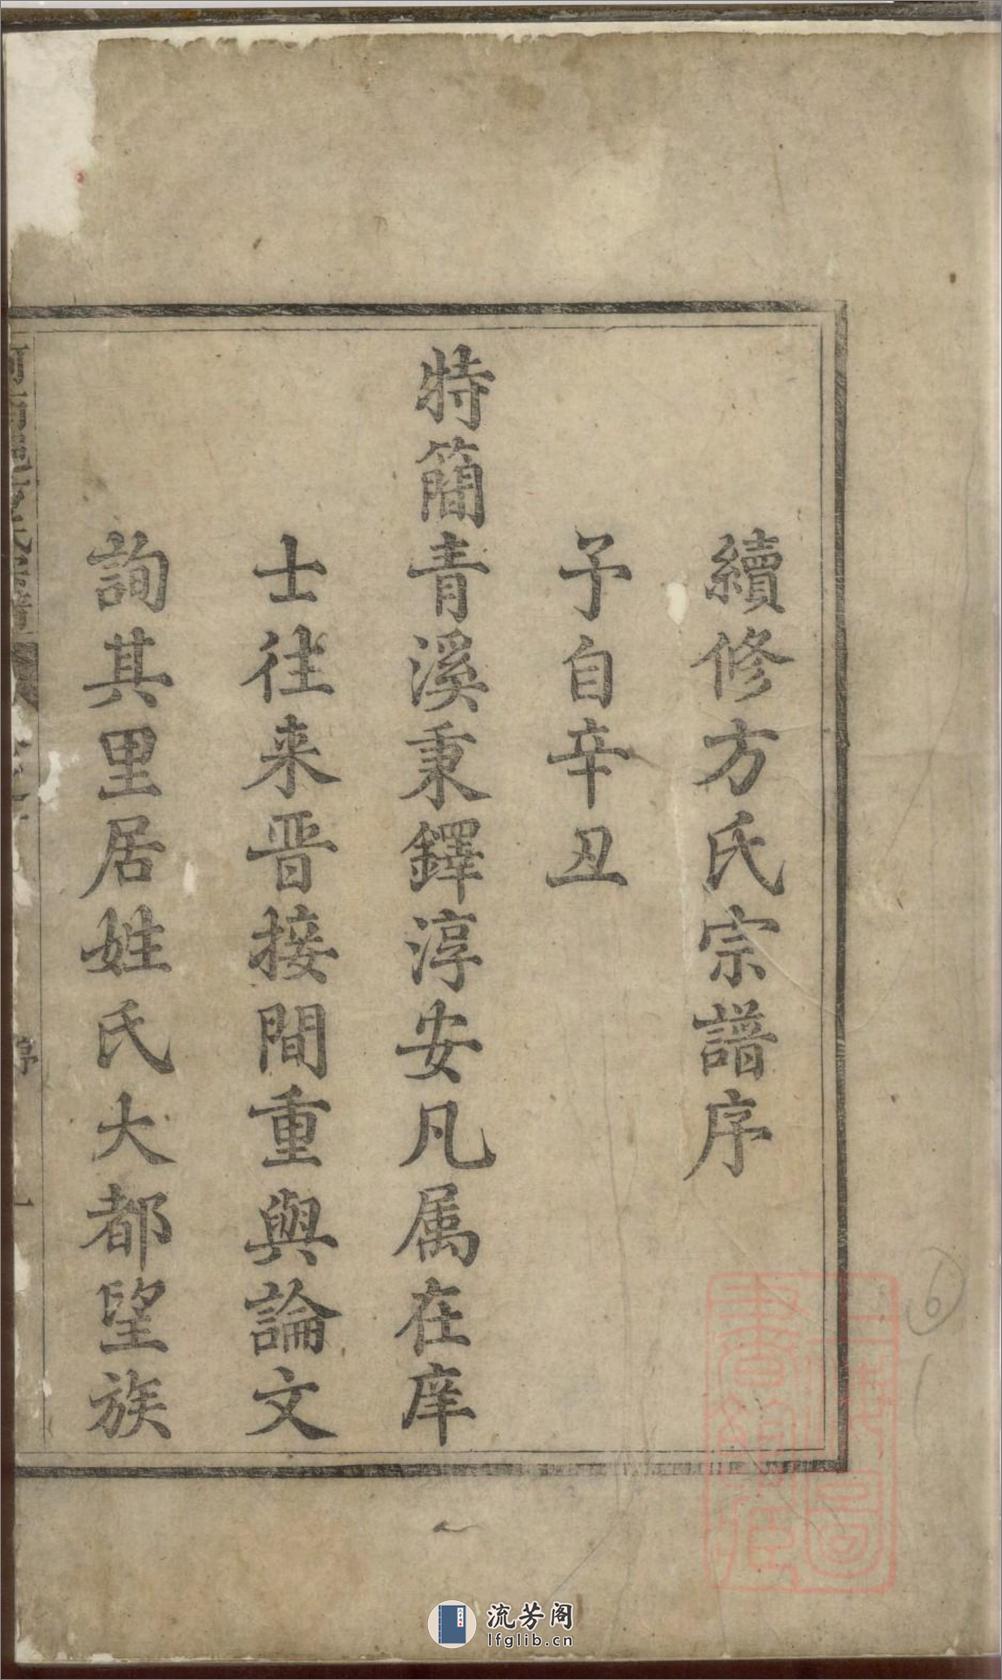 續修方氏宗譜序
予自辛丑
特簡青溪秉鐸淳安凡属在庠
士往来晋接間重與論文
詢其里居姓氏大都望族
上海圖
書館藏
6
流芳阁
lfglib.cn